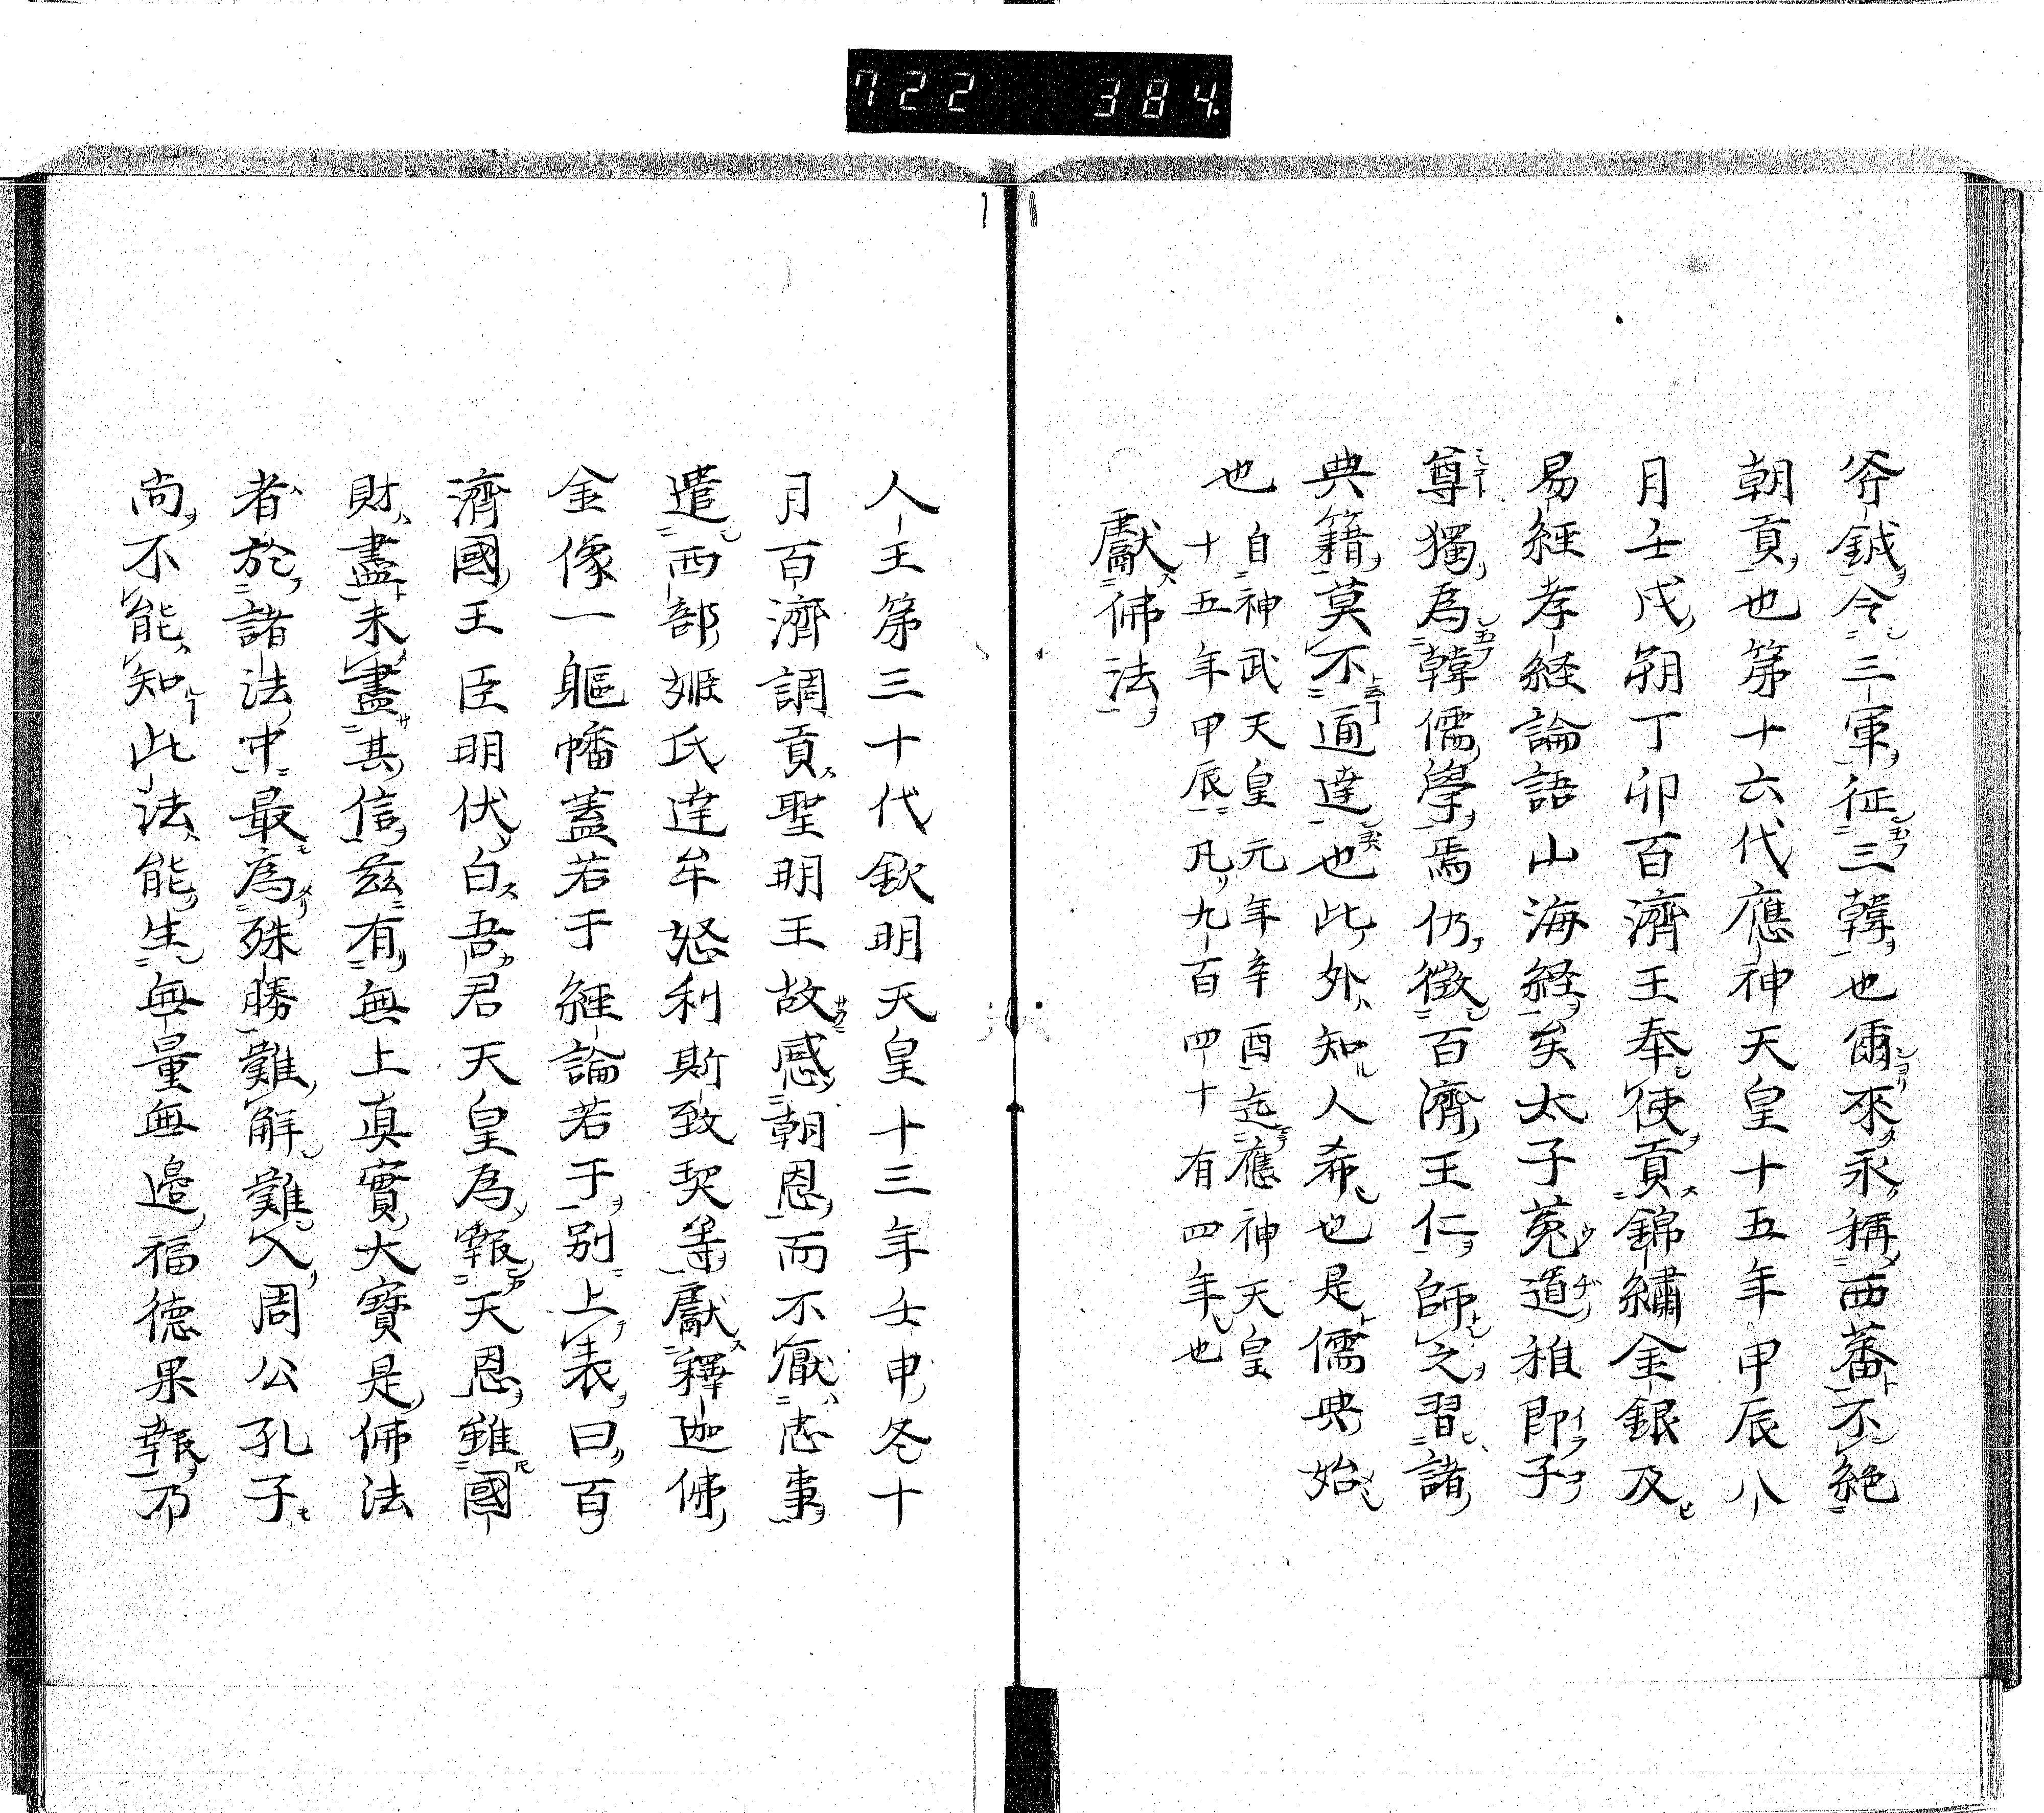 722 384.
斧鉞令三軍征三韓也爾來永稱西蕃不絶
朝貢也第十六代應神天皇十五年甲辰八
月壬戌朔丁卯百濟王奉使貢錦繡金銀及
易經孝經論語山海経矣太子菟道稚郎子
尊獨為韓儒學焉仍徴百濟王仁師之習諸
典籍莫不通達也此外知人希也是儒典始
也
自神武天皇元年辛酉迄應神天皇
十五年甲辰凡九百四十有四年也
獻佛法
人王第三十代欽明天皇十三年壬申冬十
月百濟調貢聖明王故感朝恩而不厭志事
遣西部姫氏達牟怒利斯致契等獻釋迦佛
金像一軀幡蓋若于経論若于別上表曰百
濟國王臣明伏白吾君天皇為報天恩雖國
財盡未盡其信茲有無上真實大寶是佛法
者於諸法中最為殊勝難解難入周公孔子
尚不能知此法能生無量無邊福德果報乃